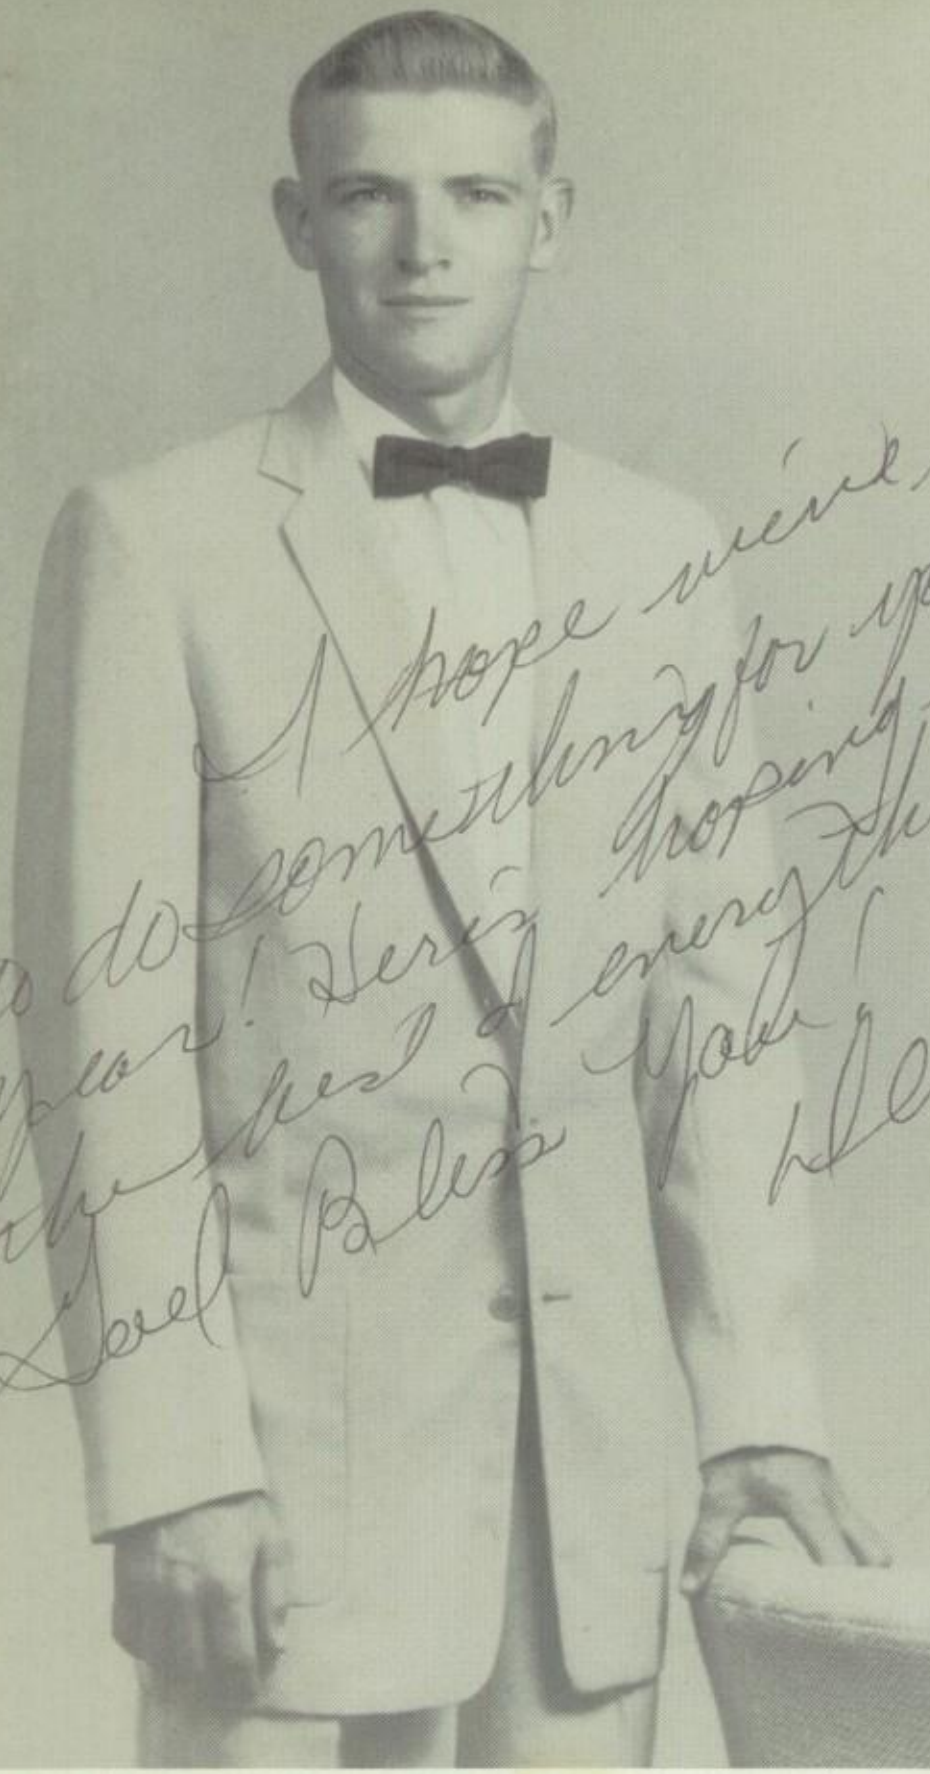 I hope we've
do something for yo
year! Here's hoping
the best of everyth
God Bless You!